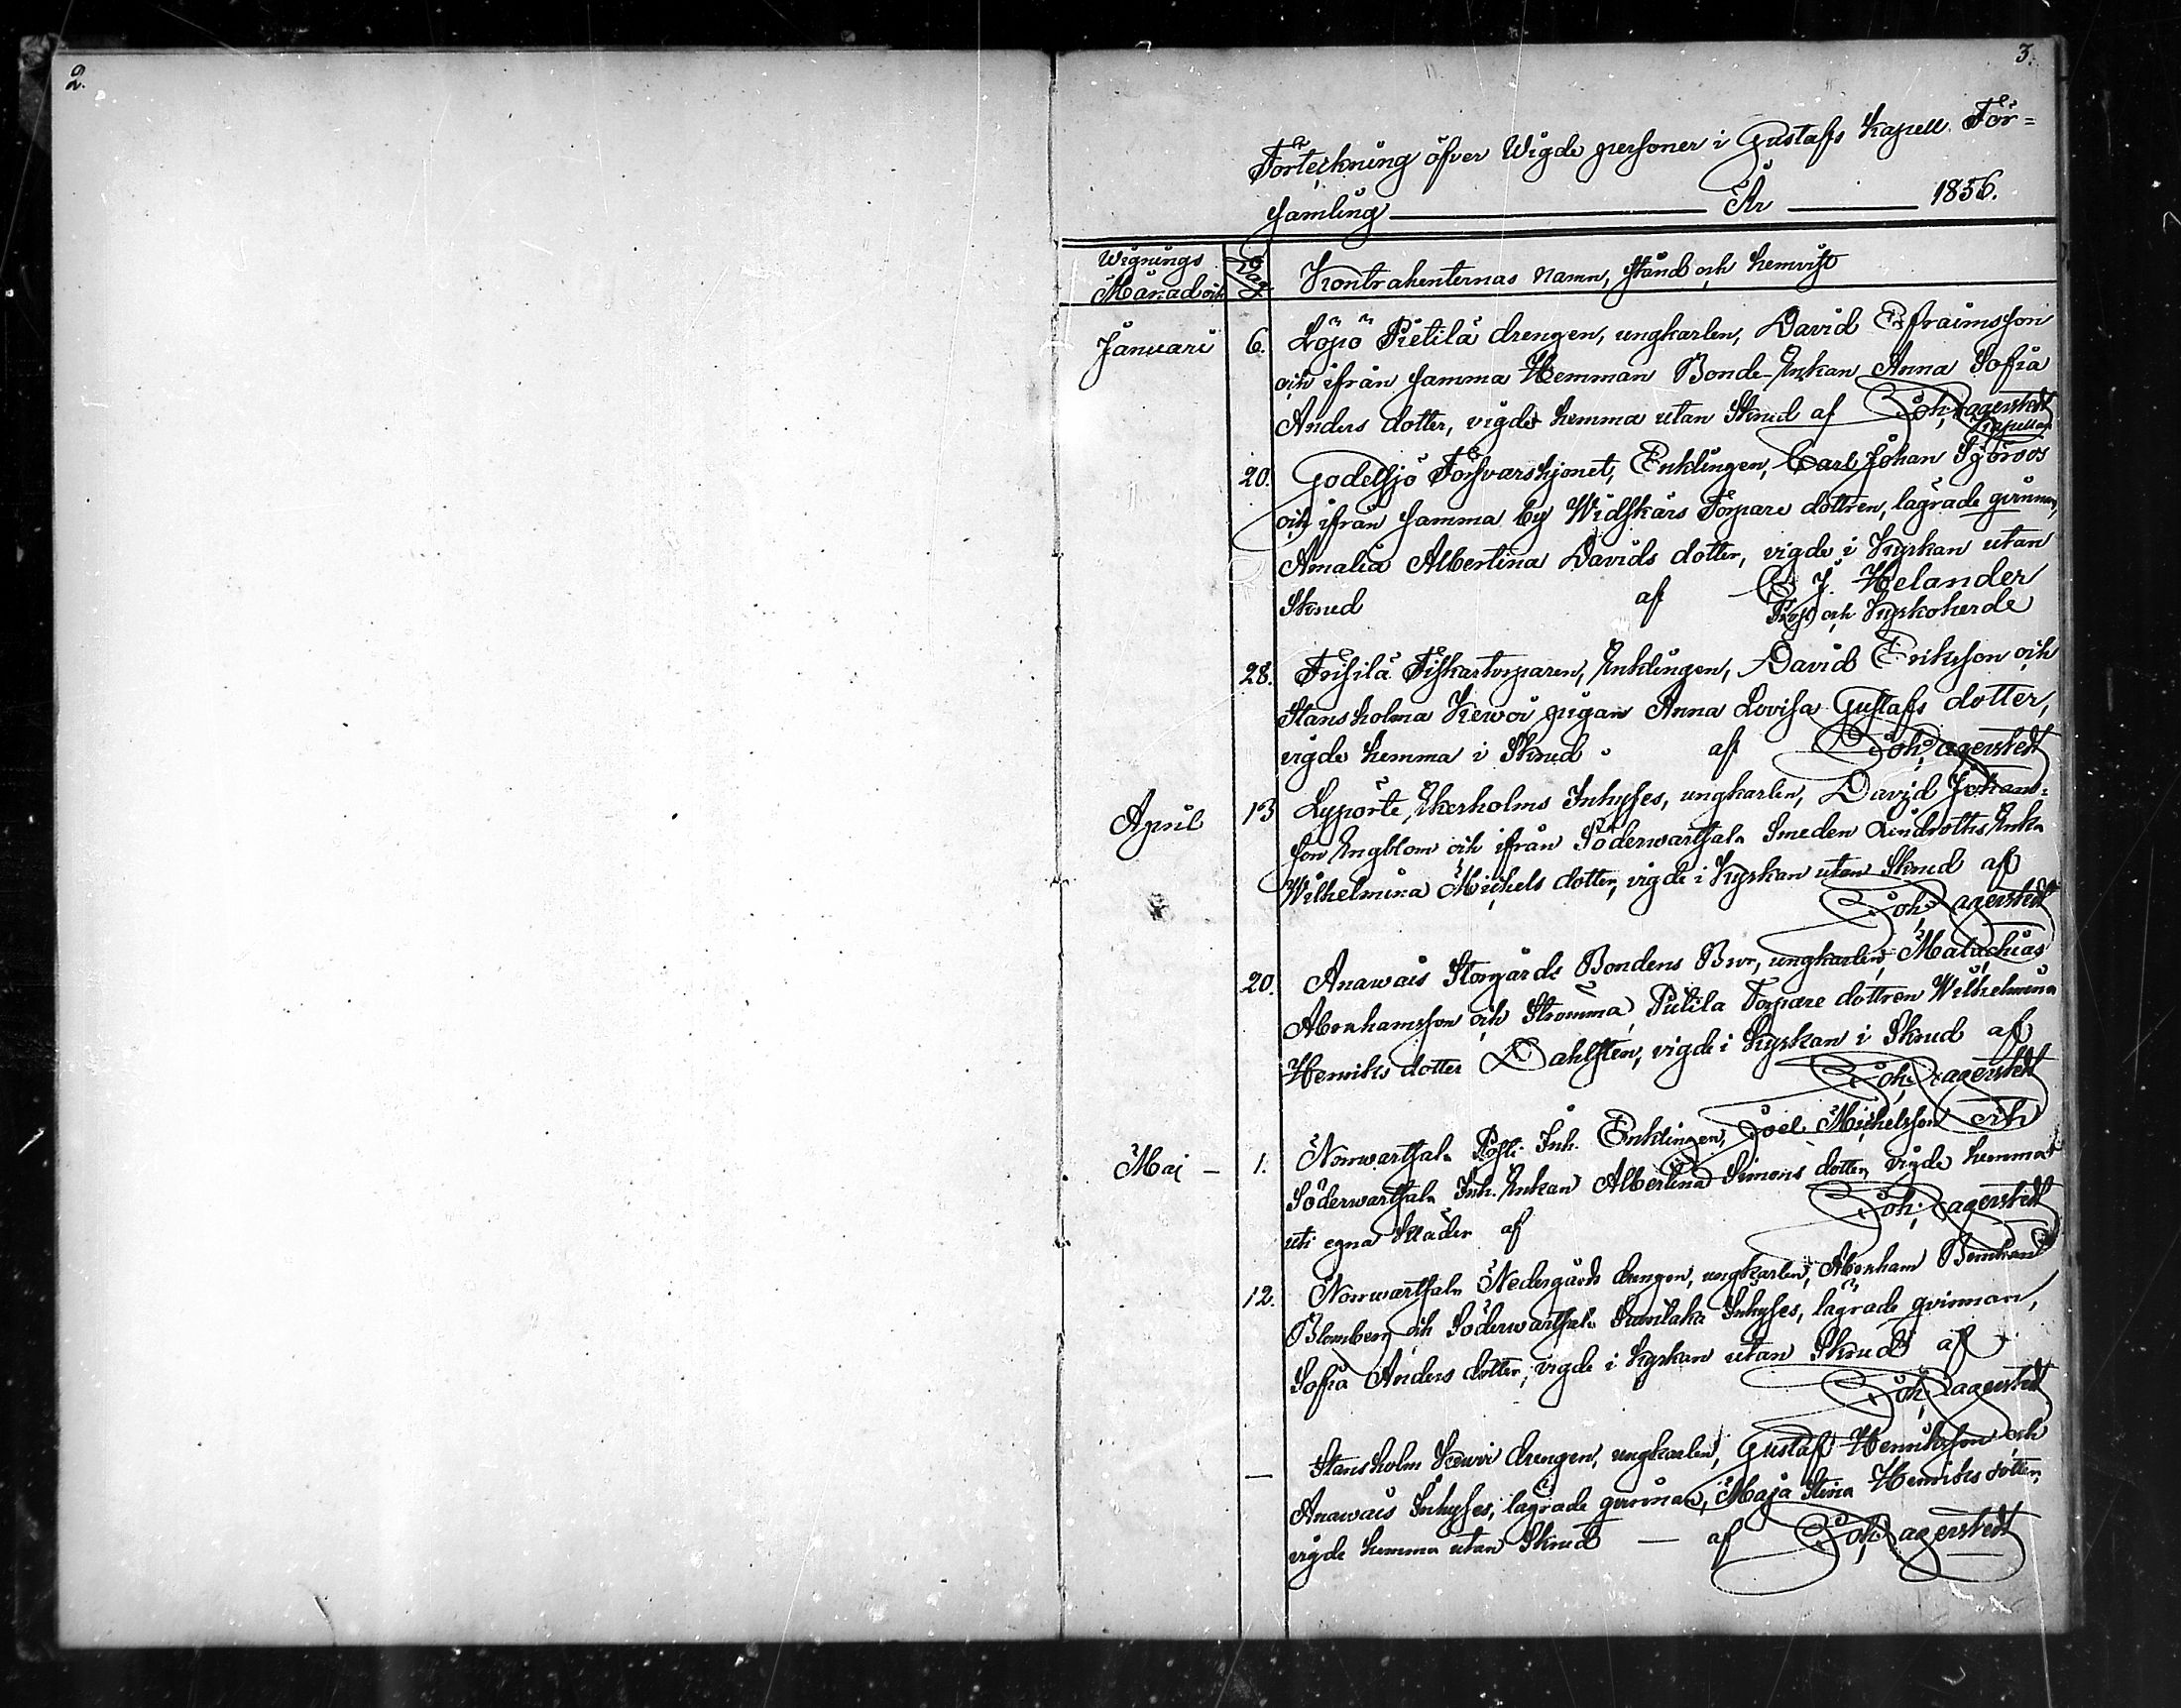 2.
3.
Förteckning öfver Wigde personer i Gustafs Kapell För=
samling År 1856.
Wignings Månad och Dag
Kontrahenternas namn, stånd och hemvist
Januari 6. Löpö Pietilä drengen, ungkarlen, David Efraimsson
och ifrån samma Hemman Bonde-Enkan Anna Sofia
Anders dotter, vigde hemma utan Skrud af Joh. Lagerstedt
Kapellan
20. Godelsjö Försvarshjonet, Enklingen, Carl Johan Sjöroos
och ifrån samma by Widskärs Torpare dottren, lägrade qvinnan,
Amalia Albertina Davids dotter, vigde i Kyrkan utan
Skrud af J. Helander
Prost och Kyrkoherde
28. Frisilä Fiskartorparen, Enklingen, David Eriksson och
Stansholma Kewoi pigan Anna Lovisa Gustafs dotter,
vigde hemma i Skrud af Joh. Lagerstedt
April 13 Lypörte, Ekerholms Inhyses, ungkarlen, David Johans=
son Engblom och ifrån Söderwartsala Smeden Lindroths Enka
Wilhelmina Michels dotter, vigde i Kyrkan utan Skrud af
Joh. Lagerstedt
20. Anawais Storgårds Bondens Bror, ungkarlen, Malachias
Abrahamsson och Strömma, Pietilä Torpare dottren Wilhelmina
Henriks dotter Dahlsten, vigde i Kyrkan i Skrud af
Joh. Lagerstedt
Maj – 1. Norrwartsala Inh. Enklingen, Joel Michelsson och
Söderwartsala Inh. Enkan Albertina Simons dotter, vigde hemma
uti egna kläder af Joh. Lagerstedt
12. Norrwartsala Nedergårds drengen, ungkarlen, Abraham Bernhard
Blomberg och Söderwartsala Inhyses, lägrade qvinnan,
Sofia Anders dotter, vigde i Kyrkan utan Skrud af
Joh. Lagerstedt
— Stansholm Kewoi drengen, ungkarlen, Gustaf Henriksson och
Anawais Inhyses, lägrade qvinnan, Maja Stina Henriks dotter,
vigde hemma utan Skrud — af Joh. Lagerstedt